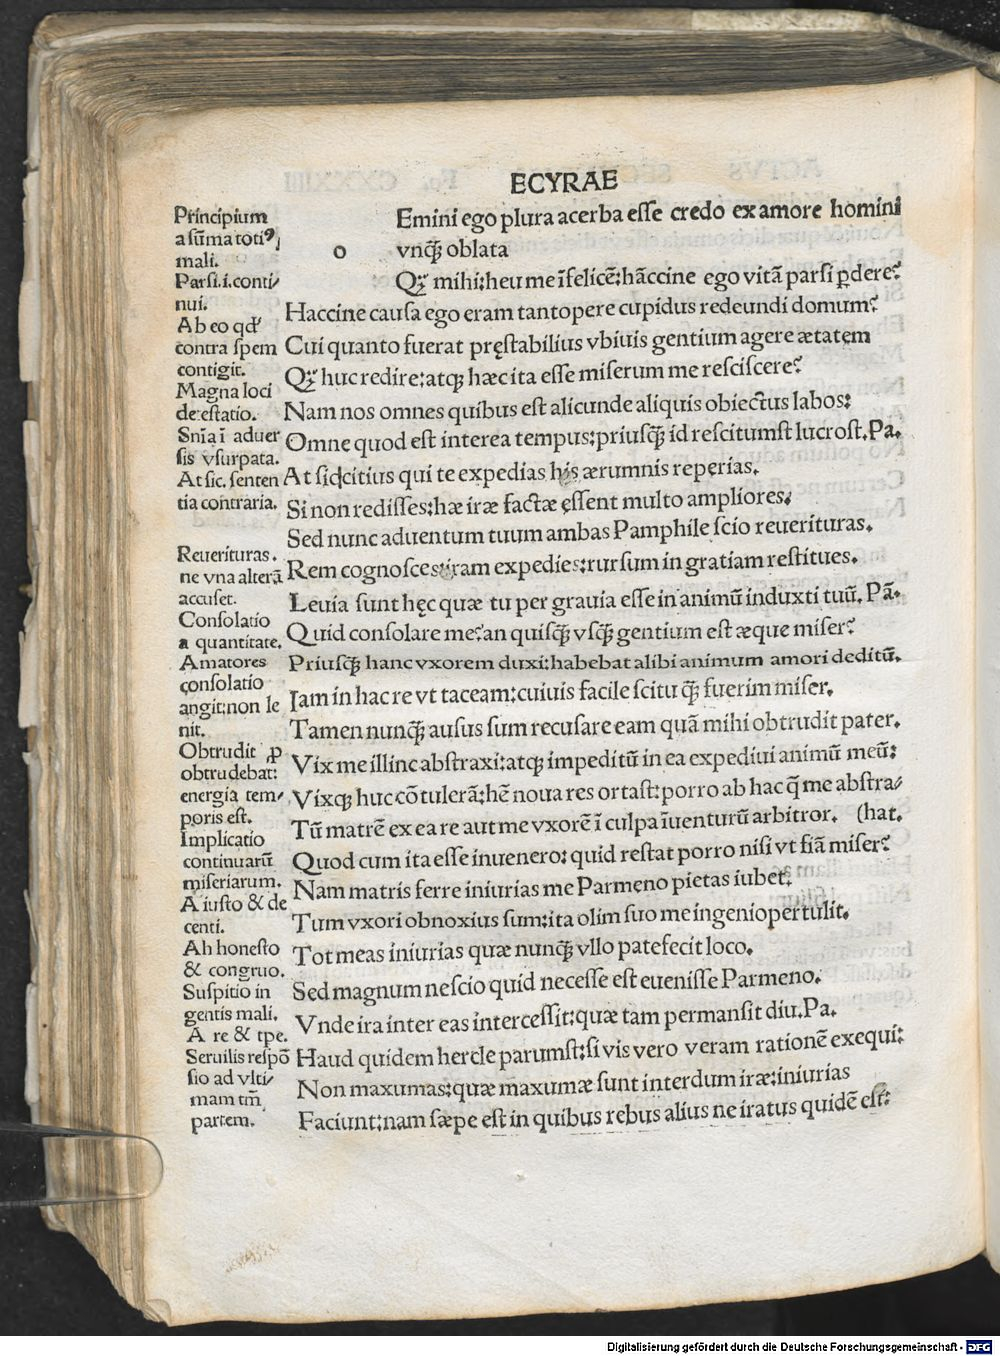 ECYRAE
Principium
a sūma totiꝰ
mali.
Parsi.i.conti/
nui.
Ab eo qd'
contra spem
contigit.
Magna loci
detestatio.
Snīa ī aduer
sis vsurpata.
At sic. senten
tia contraria.
Reuerituras.
ne vna alterā
accuset.
Consolatio
a quantitate.
Amatores
consolatio
angit:non le
nit.
Obtrudit ꝓ
obtrudebat:
energia tem/
poris est.
Implicatio
continuarū
miseriarum.
A iusto & de
centi.
Ab honesto
& congruo.
Suspitio in
gentis mali.
A re & tpe.
Seruilis respō
sio ad vlti/
mam tm̄
partem.
Emini ego plura acerba esse credo ex amore homini
o vnqꝫ̄ oblata
Qꝫ mihi:heu me īfelicē:hāccine ego vitā parsi ꝑdere?
Haccine causa ego eram tantopere cupidus redeundi domum?
Cui quanto fuerat pręstabilius vbiuis gentium agere ætatem
Qꝫ huc redire:atqꝫ hæc ita esse miserum me resciscere?
Nam nos omnes quibus est alicunde aliquis obiectus labos:
Omne quod est interea tempus:priusqꝫ̄ id rescitumst lucrost.Pa.
At sic citius qui te expedias his ærumnis reperias.
Si non redisses:hæ iræ factæ ęssent multo ampliores:
Sed nunc aduentum tuum ambas Pamphile scio reuerituras.
Rem cognosces:iram expedies:rursum in gratiam restitues.
Leuia sunt hęc quæ tu per grauia esse in animū induxti tuū. Pā.
Quid consolare me?an quisqꝫ̄ vsqꝫ̄ gentium est æque miser?
Priusqꝫ̄ hanc vxorem duxi:habebat alibi animum amori deditū.
Iam in hac re vt taceam:cuiuis facile scitu qꝫ̄ fuerim miser.
Tamen nunqꝫ̄ ausus sum recusare eam quā mihi obtrudit pater.
Vix me illinc abstraxi:atqꝫ impeditū in ea expediui animū meū:
Vixqꝫ huc cōtulerā:hē noua res ortast:porro ab hac q̄ me abstra/
Tū matrē ex ea re aut me vxorē ī culpa īuenturū arbitror. (hat.
Quod cum ita esse inuenero: quid restat porro nisi vt fiā miser?
Nam matris ferre iniurias me Parmeno pietas iubet:
Tum vxori obnoxius sum:ita olim suo me ingenio pertulit.
Tot meas iniurias quæ nunqꝫ̄ vllo patefecit loco.
Sed magnum nescio quid necesse est euenisse Parmeno.
Vnde ira inter eas intercessit:quæ tam permansit diu.Pa.
Haud quidem hercle parumst:si vis vero veram rationē exequi:
Non maxumas:quæ maxumæ sunt interdum iræ:iniurias
Faciunt:nam sæpe est in quibus rebus alius ne iratus quidē est:
Digitalisierung gefördert durch die Deutsche Forschungsgemeinschaft - DFG